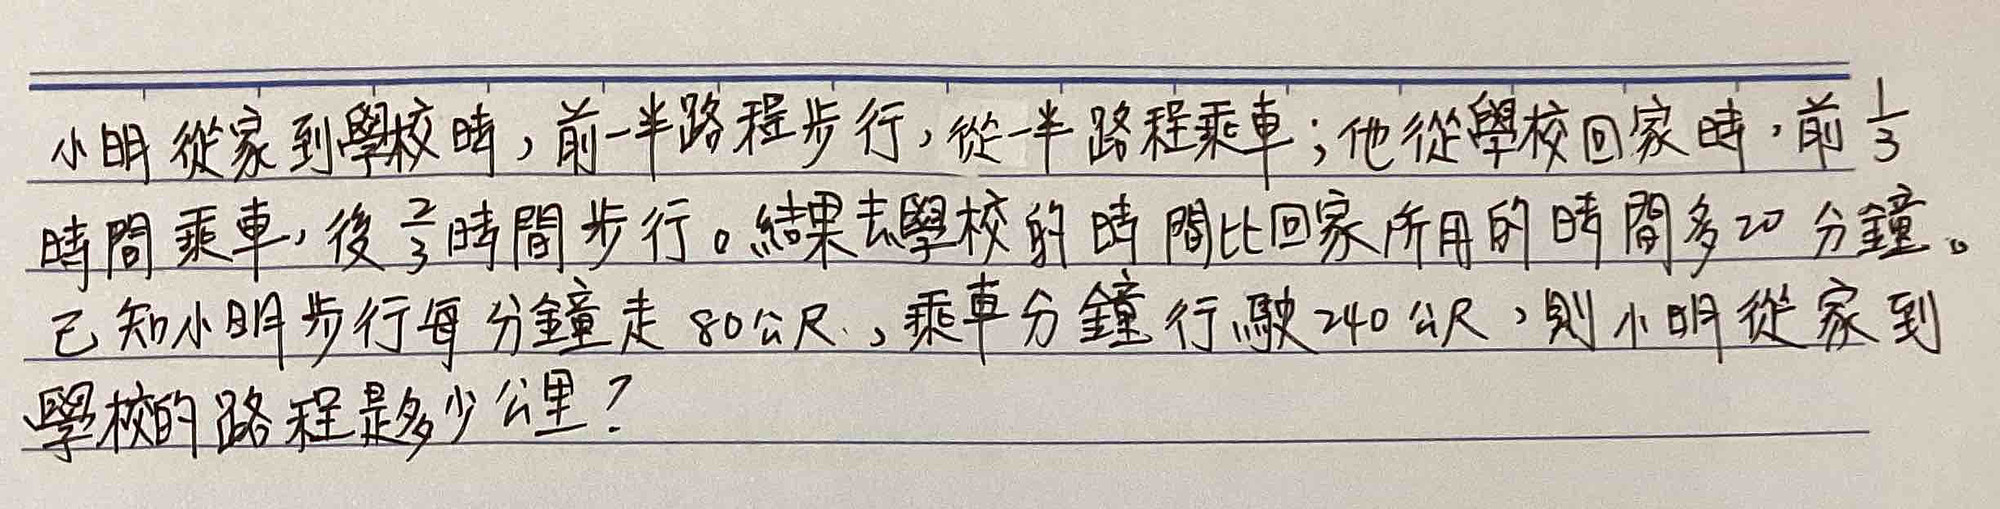 小明從家到學校時，前一半路程步行，從一半路程乘車；他從學校回家時，前1/3
時間乘車，後2/3時間步行。結果去學校的時間比回家所用的時間多20分鐘。
己知小明步行每分鐘走80公尺、乘車分鐘行駛240公尺，則小明從家到
學校的路程是多少公里？